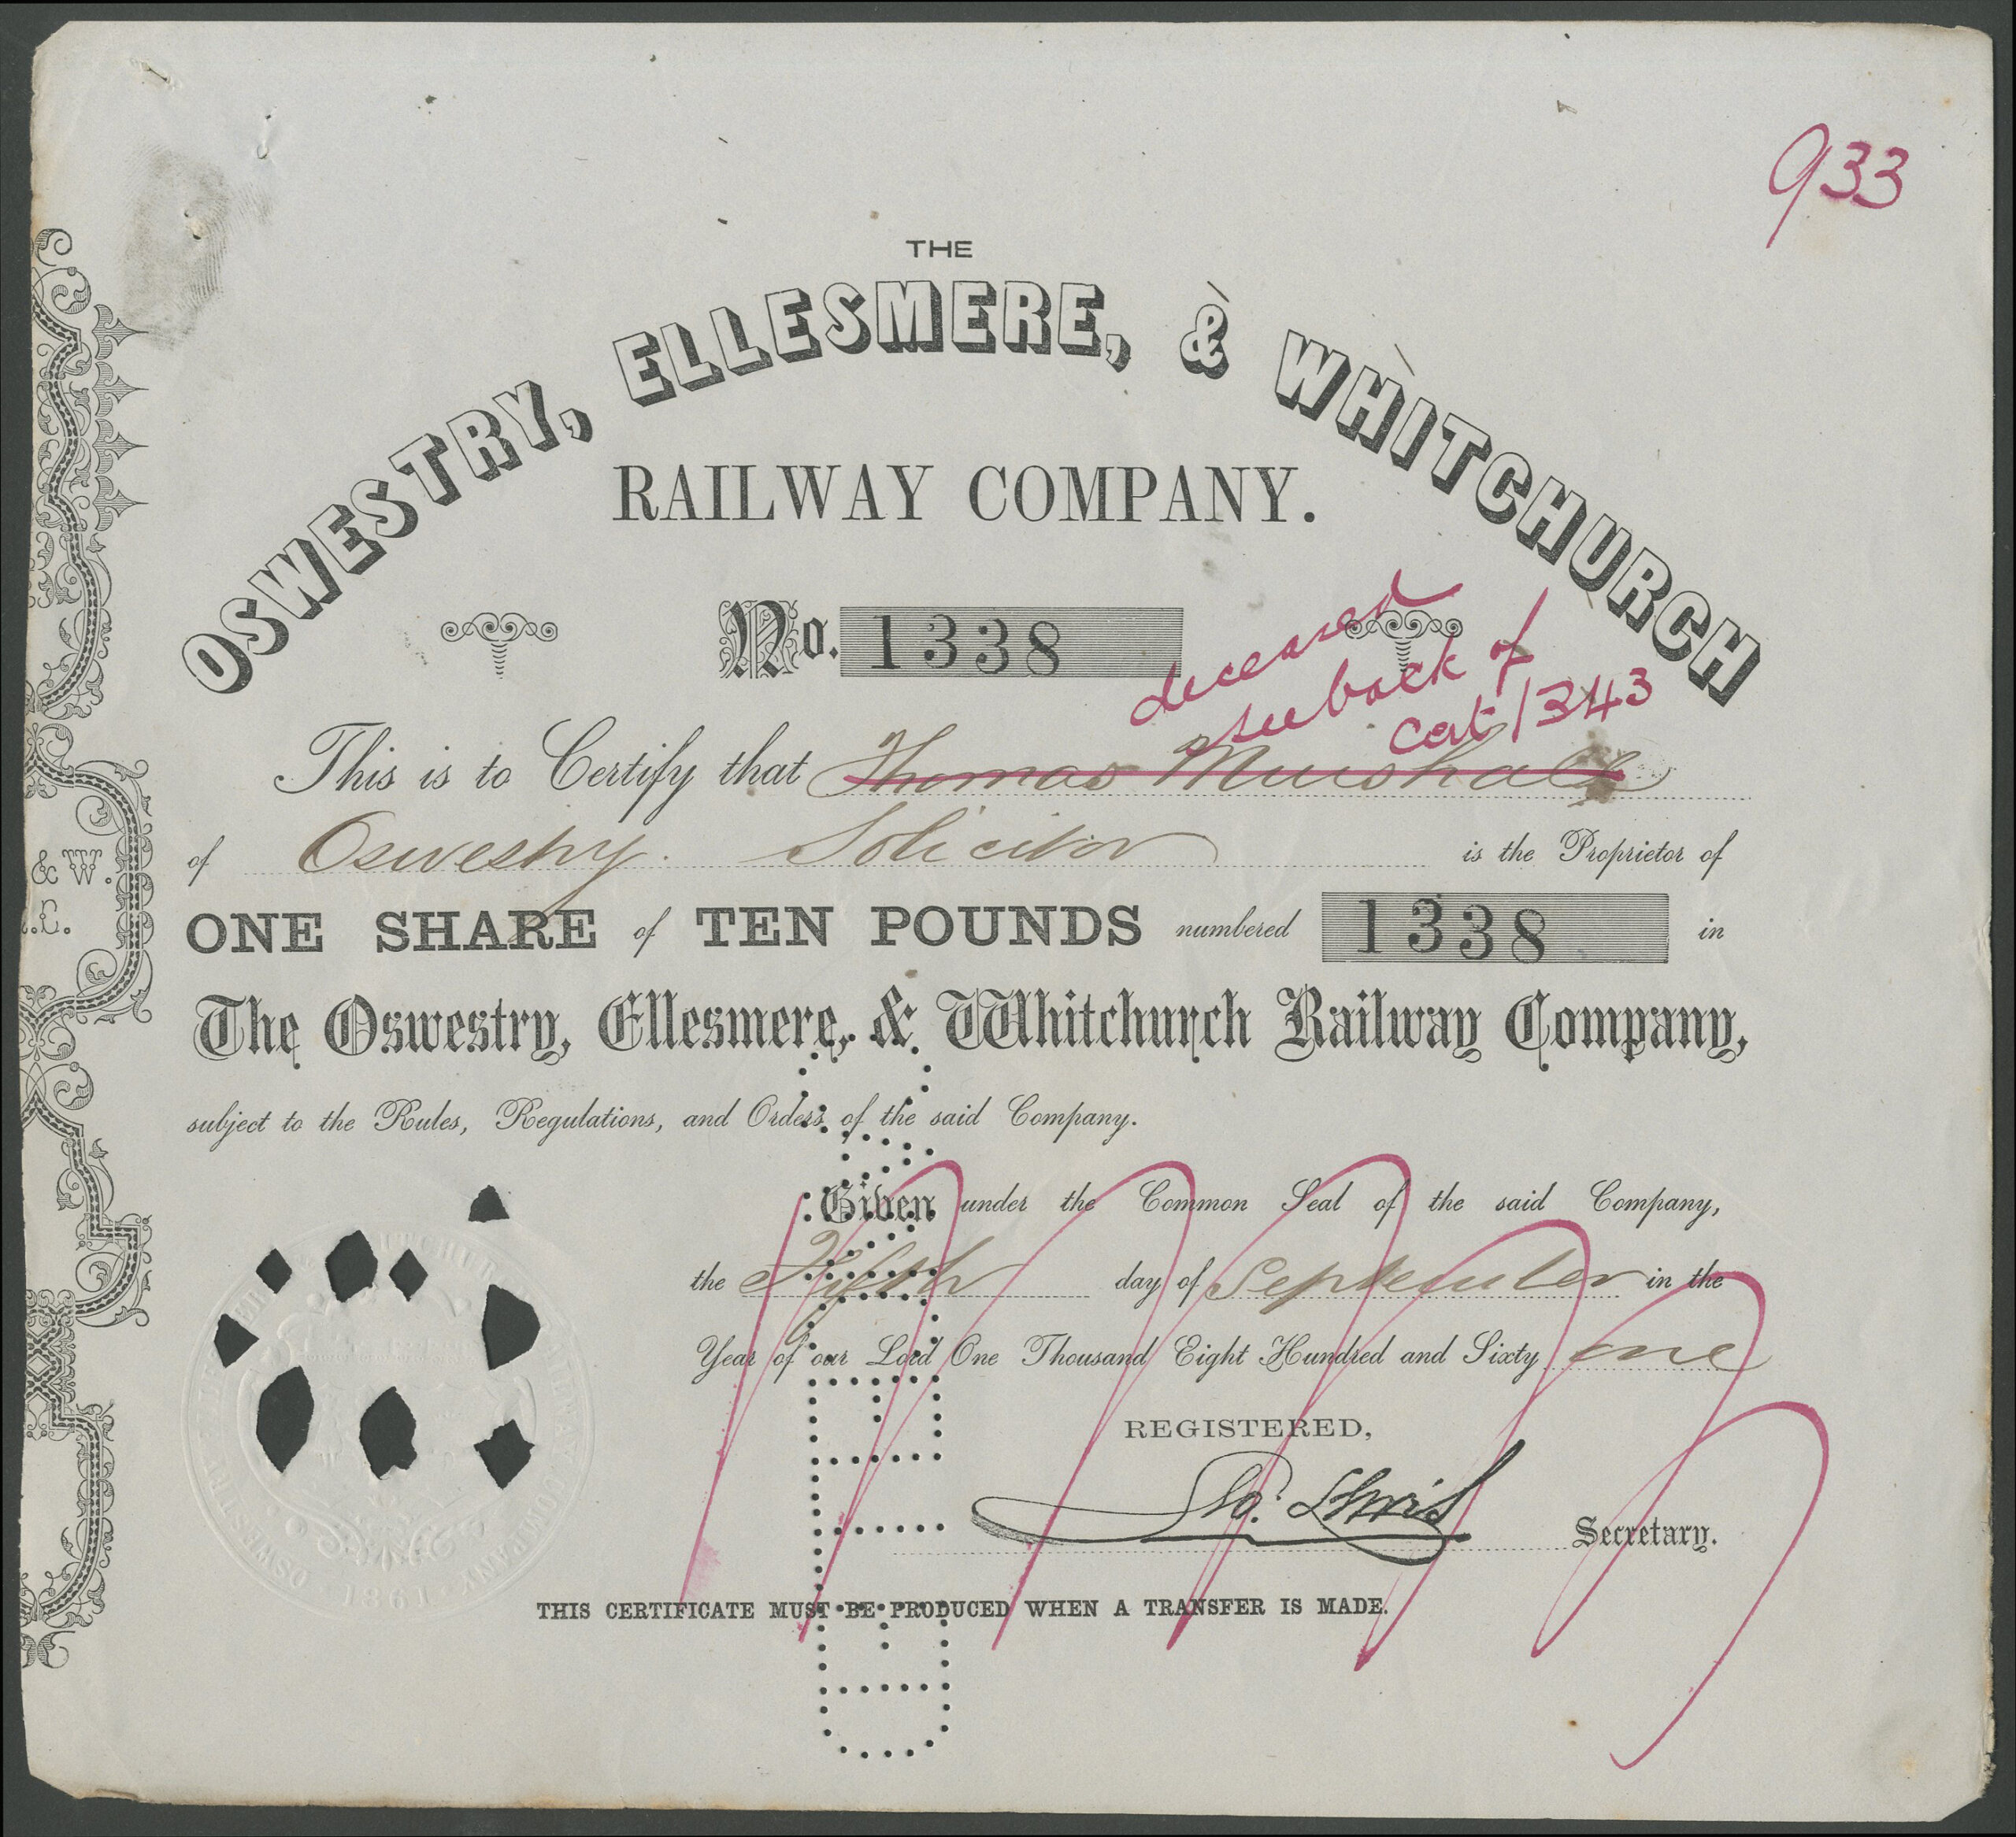 933
THE
OSWESTRY, ELLESMERE, & WHITCHURCH
RAILWAY COMPANY.
No. 1338
deceased
see back of
cert 1343
This is to Certify that Thomas Minshall
of Oswestry. Solicitor is the Proprietor of
& W.
.C.
ONE SHARE of TEN POUNDS numbered 1338 in
The Oswestry, Ellesmere, & Whitchurch Railway Company,
subject to the Rules, Regulations, and Orders of the said Company.
Given under the Common Seal of the said Company,
the Fifth day of September in the
Year of our Lord One Thousand Eight Hundred and Sixty one
REGISTERED,
Lewis Secretary.
THIS CERTIFICATE MUST BE PRODUCED WHEN A TRANSFER IS MADE.
CANCELLED
1861